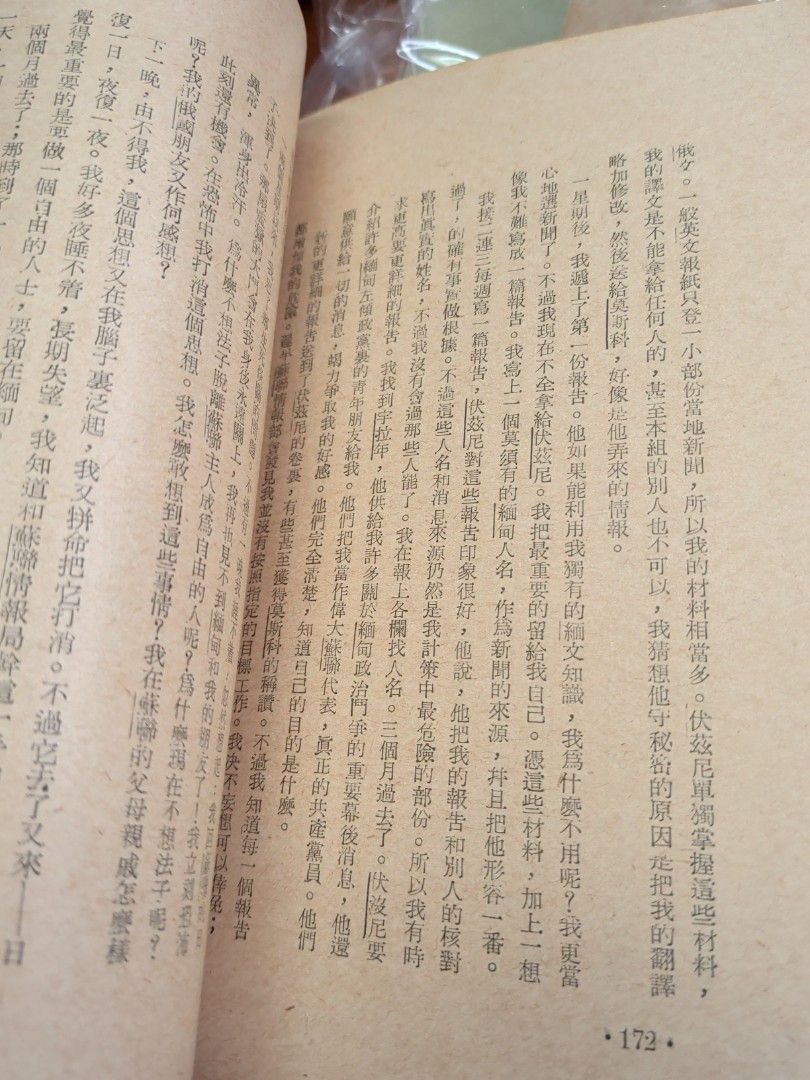 俄文。一般英文報紙只登一小部份當地新聞，所以我的材料相當多。伏茲尼單獨掌握這些材料，
我的譯文是不能拿給任何人的，甚至本組的別人也不可以，我猜想他守秘密的原因是把我的翻譯
略加修改，然後送給莫斯科，好像是他弄來的情報。
一星期後，我遞上了第一份報告。他如果能利用我獨有的緬文知識，我爲什麼不用呢？我更當
心地選新聞了。不過我現在不全拿給伏茲尼。我把最重要的留給我自己。憑這些材料，加上一想
像我不難寫成一篇報告。我寫上一個莫須有的緬甸人名，作爲新聞的來源，幷且把他形容一番。
我接二連三每週寫一篇報告，伏茲尼對這些報告印象很好，他說，他把我的報告和別人的核對
過了，的確有事實做根據。不過這些人名和消息來源仍然是我計策中最危險的部份。所以我有時
寫用眞實的姓名，不過我沒有會過那些人罷了。我在報上各欄找人名。三個月過去了。伏沒尼要
求更高要更詳細的報告。我找到宇拉年，他供給我許多關於緬甸政治鬥爭的重要幕後消息，他還
介紹許多緬甸左傾政黨裏的靑年朋友給我。他們把我當作偉大蘇聯代表，眞正的共產黨員。他們
願意供給一切的消息，竭力爭取我的好感。他們完全淸楚，知道自己的目的是什麼。
新的更詳細的報告送到了伏茲尼的卷裏，有些甚至獲得莫斯科的稱讚。不過我知道每一個報告
都增加我的危險。遲早蘇聯情報部會發見我並沒有按照指定的目標工作。我決不妄想可以倖免；
異常，渾身出冷汗。爲什麼不想法子脫離蘇聯主人成爲自由的人呢？爲什麼現在不想法子呢？
此刻還有機會。在恐怖中我打消這個思想。我怎麼敢想到這些事情？我在蘇聯的父母親戚怎麼樣
呢？我的俄國朋友又作何感想？
下一晚，由不得我，這個思想又在我腦子裏泛起，我又拼命把它打消。不過它去了又來——日
復一日，夜復一夜。我好多夜睡不着，長期失望，我知道和蘇聯情報局幹這一
覺得最重要的是要做一個自由的人士，要留在緬甸。
兩個月過去了；那時到了
一天，
·172·